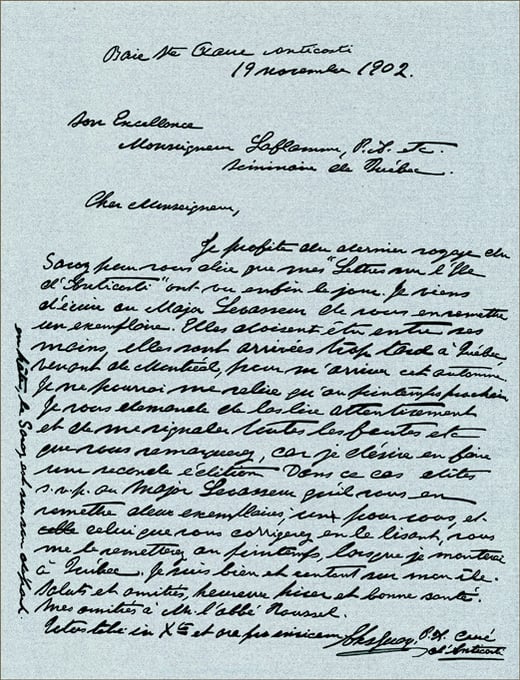 Baie Ste Claire Anticosti
19 novembre 1902.
Son Excellence
Monseigneur Laflamme, P.A. etc.
Séminaire de Québec.
Cher Monseigneur,
Je profite du dernier voyage du
Savoy pour vous dire que mes "Lettres sur l'Île
d'Anticosti" ont vu enfin le jour. Je viens
d'écrire au Major Levasseur de vous en remettre
un exemplaire. Elles doivent être entre ses
mains, elles sont arrivées trop tard à Québec,
venant de Montréal, pour m'arriver cet automne.
Je ne pourrai me relire qu'au printemps prochain
Je vous demande de les lire attentivement
et de me signaler toutes les fautes etc
que vous remarquerez, car je désire en faire
une seconde édition. Dans ce cas dites
s.v.p. au Major Levasseur qu'il vous en
remette deux exemplaires, un pour vous, et
celui que vous corrigerez en le lisant, vous
me le remettrez au printemps, lorsque je monterai
à Québec. Je suis bien et content sur mon île.
Saluts et amitiés, heureux hiver et bonne santé.
Mes amitiés à M. l'abbé Roussel.
Totus tibi in Xto et ora pro
P.A. Curé
d'Anticosti
en hâte, le Savoy est sur son départ.